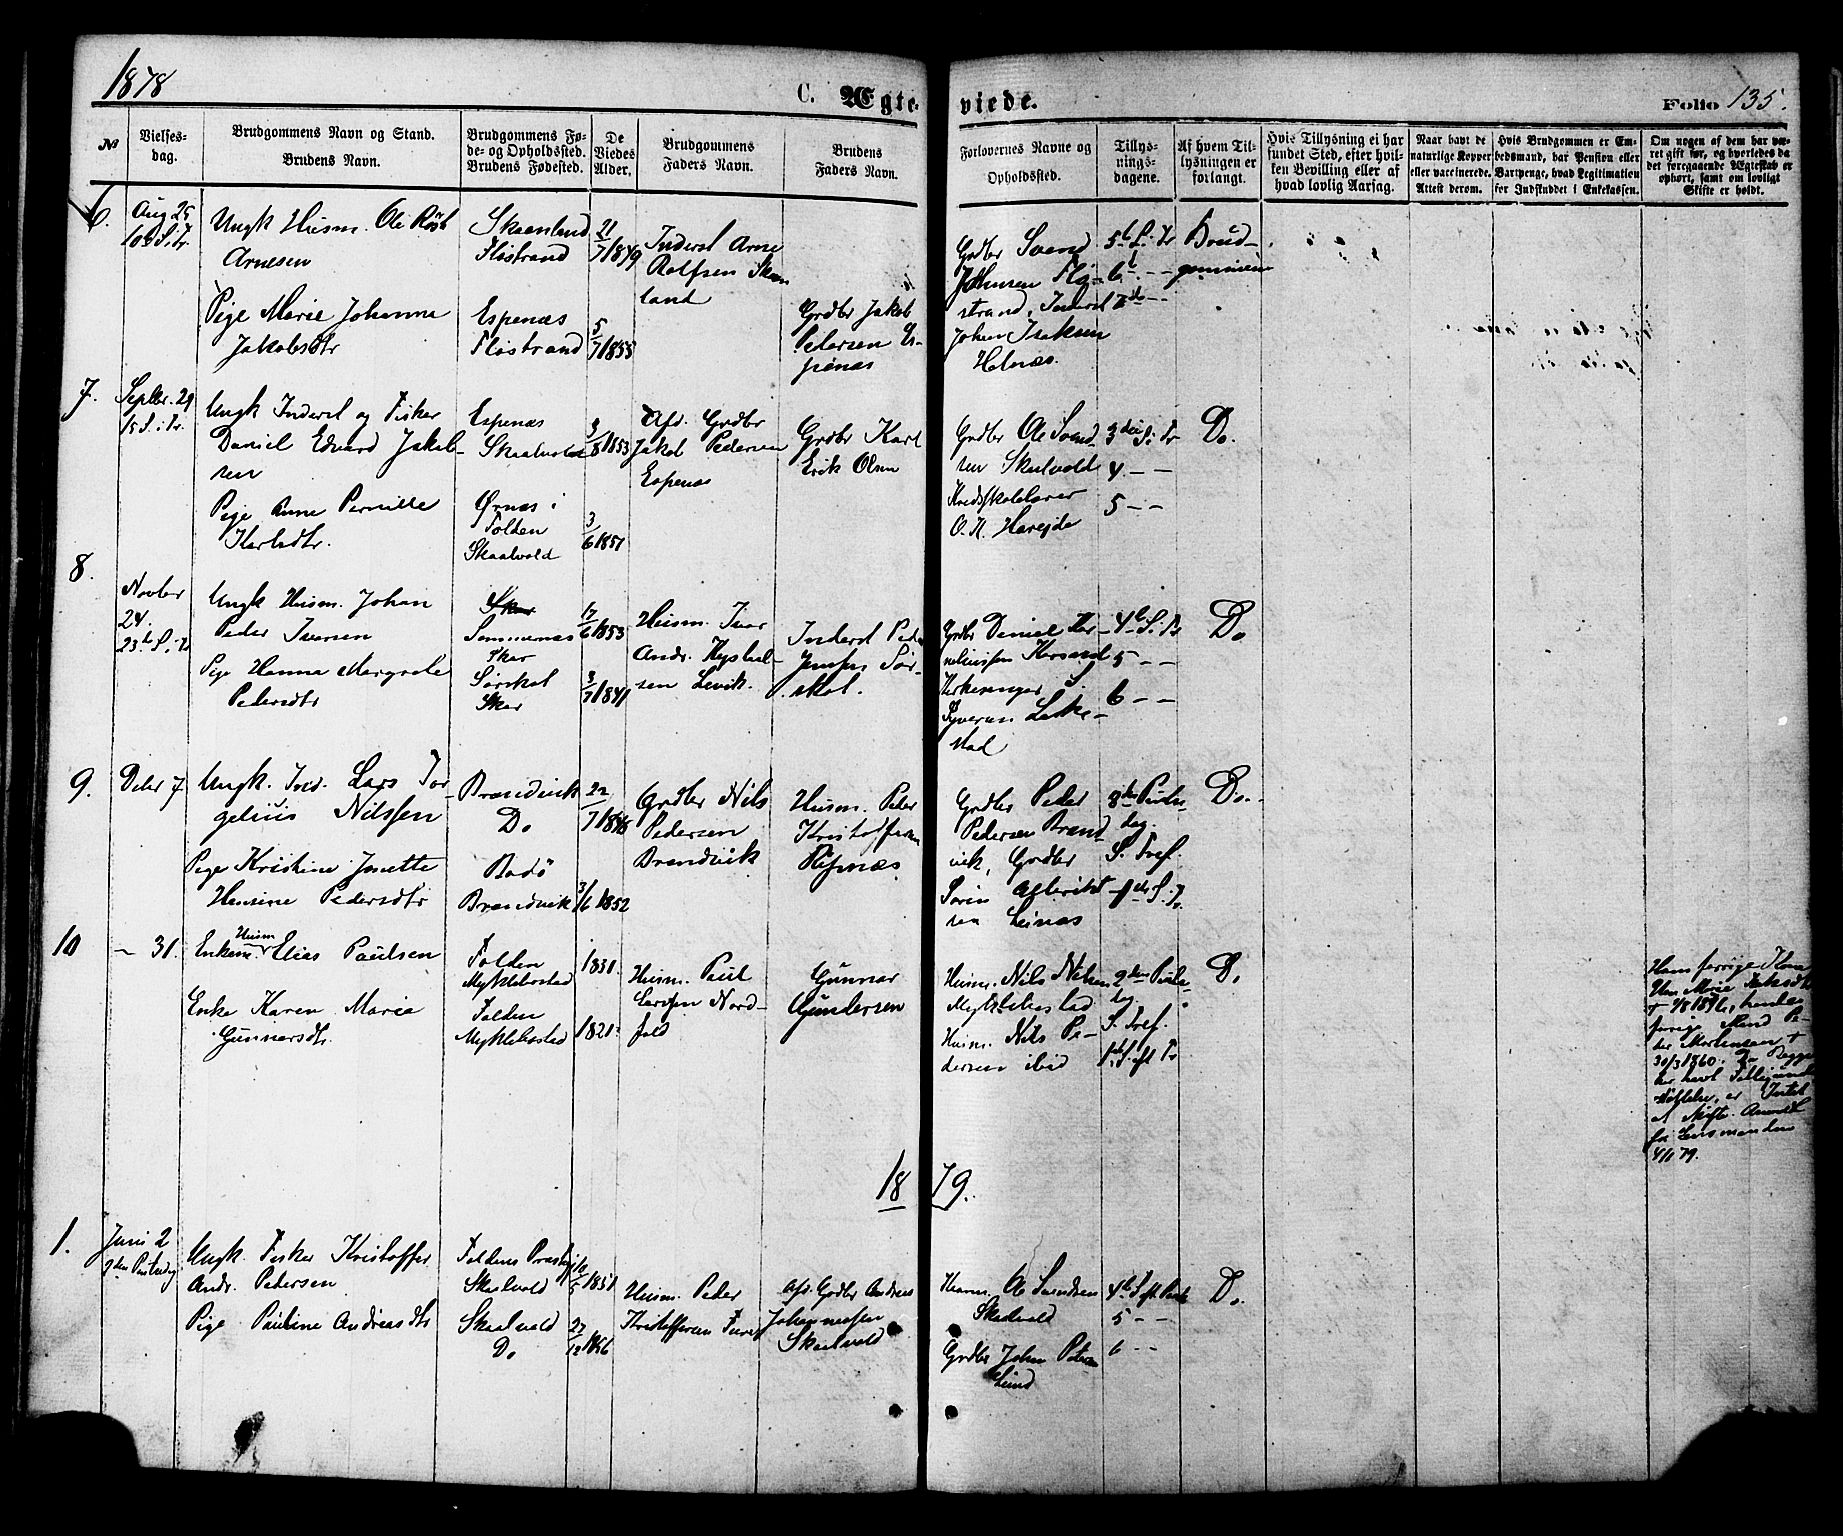 1878
C. Ægte-
viede.
Folio 135.
№
Vielses-
dag.
Brudgommens Navn og Stand.
Brudens Navn.
Brudgommens Fø-
de- og Opholdssted.
Brudens Fødested.
De
Viedes
Alder.
Brudgommens
Faders Navn.
Brudens
Faders Navn.
Forlovernes Navne og
Opholdssted.
Tillys-
nings-
dagene.
Af hvem Til-
lysningen er
forlangt.
Hvis Tillysning ei har
fundet Sted, efter hvil-
ken Bevilling eller af
hvad lovlig Aarsag.
Naar havt de
naturlige Kopper
eller vaccinerede.
Attest derom.
Hvis Brudgommen er Em-
bedsmand, har Pension eller
Vartpenge, hvad Legitimation
for Indskuddet i Enkekassen.
Om nogen af dem har væ-
ret gift før, og hvorledes da
det foregaaende Ægteskab er
ophørt, samt om lovligt
Skifte er holdt.
6.
Aug 25
10de S. Tr.
Ungk Husm. Ole Røst
Arnesen
Pige Marie Johanna
Jakobsdtr
Skaanland
Fløstrand
Espenæs
Fløstrand
21/7 1849
5/7 1855
Inderst Arne
Rolfsen Skaan
land
Grdbr Jakob
Pedersen Es-
penæs
Grdbr Svend
Johnsen Flø-
strand, Inderst
Johan Isaksen
Holmæs.
5te S. Tr
6t - -
7de - -
Brud-
gommen
7.
Septbr. 29
15 S. Tr.
Ungk Inderst og Fisker
Daniel Edvard Jakob-
sen
Pige Anne Pernille
Karlsdtr.
Espenæs
Skaalvold
Ørnæs i
Folden
Skaalvold
3/8 1853
3/6 1851
Afd. Grdbr
Jakob Pedersen
Espenæs
Grdbr Karl
Erik Olsen
Grdbr Ole Svend-
sen Skalvold
Kredsskolelærer
O. N. Hareide
3die S. Tr
4 - -
5 - -
Do.
8.
Novbr
24.
23de S. Tr
Ungk Husm. Johan
Peder Iversen
Pige Hanna Margrete
Pedersdtr
Sommernæs
Skar
Sørskot
Skar
17/6 1853
3/7 1841
Husm. Ivar
Andr. Kystal-
sen Levik.
Inderst Peder
Jensen Sør-
skot.
Grdbr Daniel Kor-
neliussen
Kirkesanger
4de S. Tr
5 - -
6 - -
Do
9.
Debr 7
Ungk. Ind. Lars Tor-
gelius Nilssen
Pige Kristine Jonette
Hansine Pedersdtr
Brandvik
Do
Bodö
Brandvik
22/7 1846
3/6 1852
Grdbr Nils
Pedersen
Brandvik
Husm. Peder
Kristoffersen
Grdbr Peder
Pedersen Brand
vik, Grdbr
Sørin Albrikt-
sen Leinæs
dag.
S. Tref.
Do.
10
- 31.
Enkem. Husm Elias Paulsen
Enke Karen Maria
Gunnarsdtr.
Folden
Myklebostad
Folden
Myklebostad
1831.
1821.
Husm. Paul
Larsen Nord-
fold
Gunnar
Gundersen
Husm. Nils Nilsen
Myklebostad
Husm. Nils Pe-
dersen ibid
2den Pintse-
dag.
S. Tref.
1ste S. eft Tr
Do.
Hans forrige Kone
forrige Mand Pe-
der Mortensen †
30/3 1860.
for Lensmanden
4/1 79.
1879.
1.
Juni 2
2den Pintsedag
Ungk. Fisker Kristoffer
Andr. Pedersen
Pige Pauline Andreasdtr
Foldens Præstegj
Skaalvold
Skaalvold
Do
1851
27/12 1856
Husm. Peder
Kristoffersen
Afd. Grdbr Andreas
Johannessen
Skaalvold
Husm. Ole Svendsen
Skalvold
Grdbr John Peters
Leind
4de S. eft. Paask
5 - -
6 - -
Do.